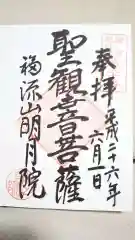 奉拝
平成二十六年
六月一日
聖観世音菩薩
福流山明月院